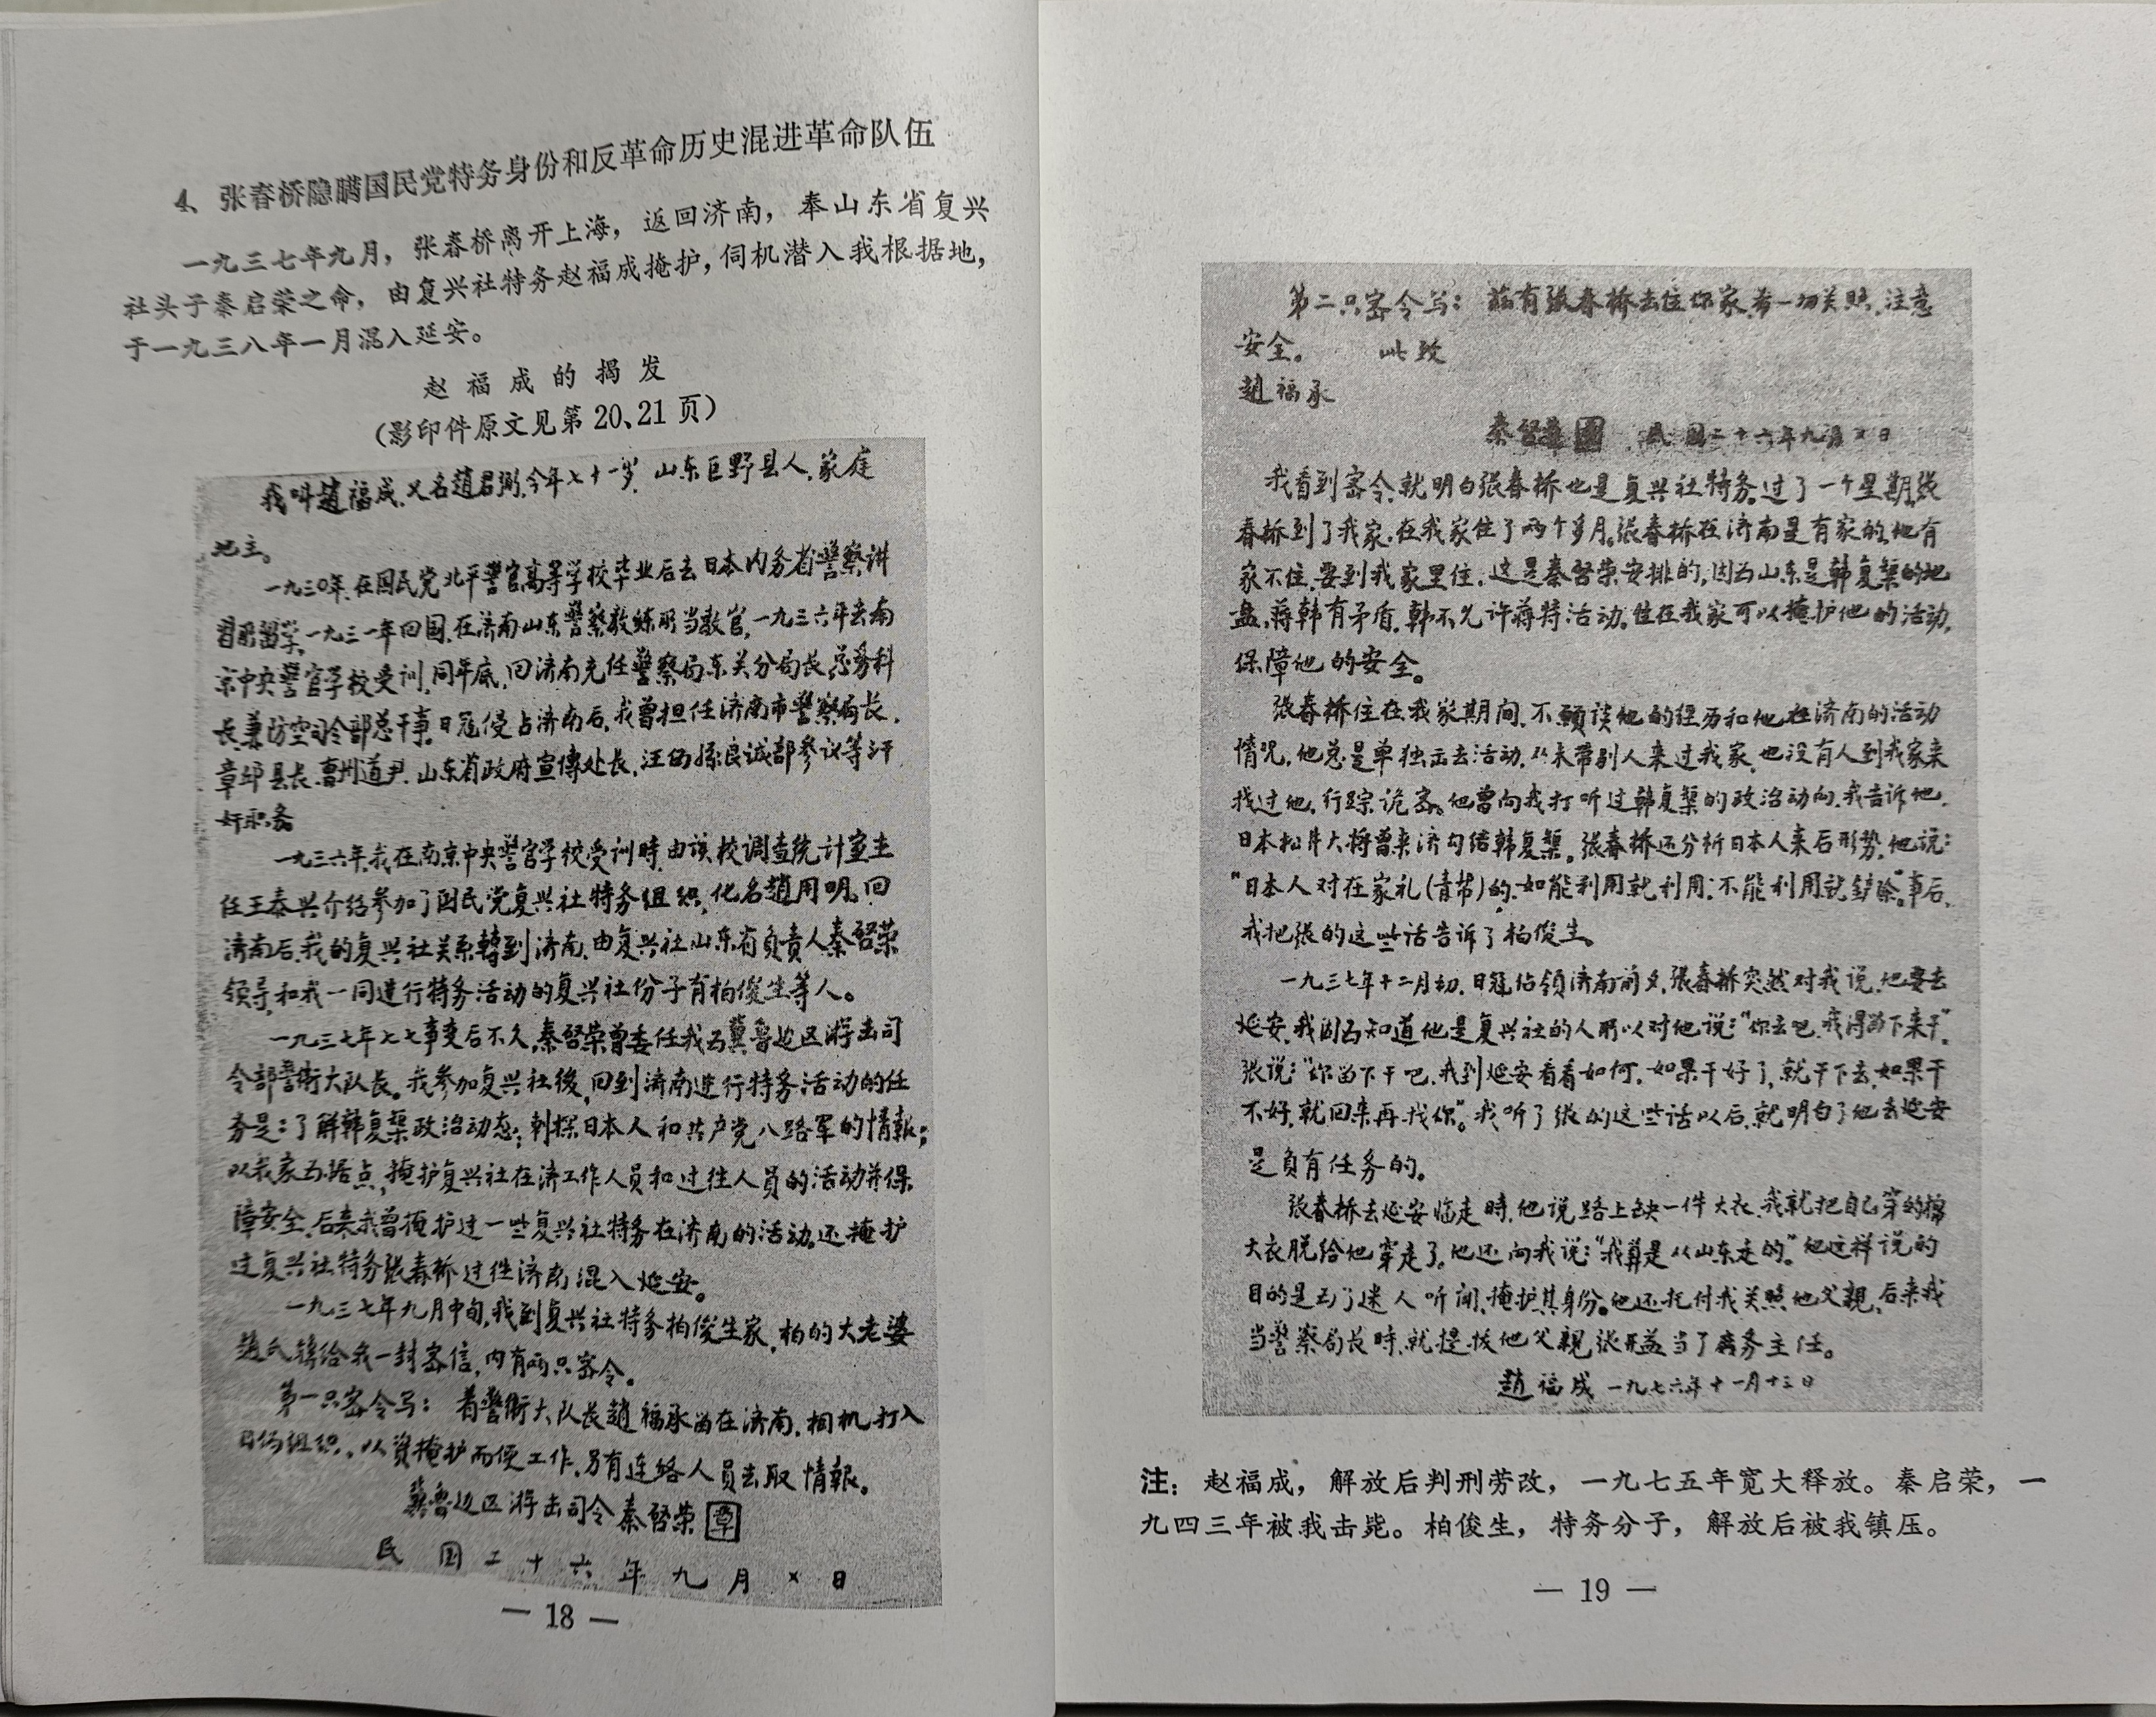 4、张春桥隐瞒国民党特务身份和反革命历史混进革命队伍
一九三七年九月，张春桥离开上海，返回济南，奉山东省复兴
社头子秦启荣之命，由复兴社特务赵福成掩护，伺机潜入我根据地，
于一九三八年一月混入延安。
赵福成的揭发
（影印件原文见第20、21页）
我叫趙福成，又名趙君弼，今年七十一岁，山东巨野县人，家庭
地主。
一九三〇年，在国民党北平警官高等学校毕业后去日本内务省警察讲
習所留学，一九三一年回国，在济南山东警察教练所当教官，一九三六年去南
京中央警官学校受训，同年底，回济南充任警察局东关分局长、总务科
长兼防空司令部总干事。日冦侵占济南后，我曾担任济南市警察局长、
章邱县长、曹州道尹、山东省政府宣傳处长、汪伪孫良诚部参议等汗
奸职务。
一九三六年，我在南京中央警官学校受训時，由该校调查統计室主
任王泰兴介绍参加了国民党复兴社特务组织，化名趙用明。回
济南后，我的复兴社关系轉到济南，由复兴社山东省负责人秦啓荣
领导，和我一同進行特务活动的复兴社份子有柏俊生等人。
一九三七年七七事变后不久，秦啓荣曾委任我为冀鲁边区游击司
令部警衛大队长。我参加复兴社後，回到济南進行特务活动的任
务是：了解韩复榘政治动态；刺探日本人和共产党八路军的情報；
以我家为据点，掩护复兴社在济工作人员和过往人员的活动并保
障安全。后来我曾掩护过一些复兴社特务在济南的活动，还掩护
过复兴社特务张春桥过往济南混入延安。
一九三七年九月中旬，我到复兴社特务柏俊生家，柏的大老婆
趙氏转给我一封密信，内有两只密令。
第一只密令写：着警衛大队长趙福承留在济南，相机打入
日伪组织，以资掩护而便工作，另有连络人员去取情報。
冀鲁边区游击司令秦啓荣 章
民国二十六年九月×日
— 18 —
第二只密令写：兹有张春桥去住你家，希一切关照，注意
安全。 此致
趙福承
秦啓荣 民国二十六年九月×日
我看到密令，就明白张春桥也是复兴社特务。过了一个星期，张
春桥到了我家，在我家住了两个多月。张春桥在济南是有家的，他有
家不住，要到我家里住，这是秦啓荣安排的，因为山东是韩复榘的地
盘，蒋韩有矛盾，韩不允许蒋特活动，住在我家可以掩护他的活动，
保障他的安全。
张春桥住在我家期间，不願谈他的经历和他在济南的活动
情况，他总是单独出去活动，从未带别人来过我家，也没有人到我家来
找过他，行踪诡密。他曾向我打听过韩复榘的政治动向，我告诉他，
日本松井大将曾来济勾结韩复榘。张春桥还分析日本人来后形势，他说：
“日本人对在家礼（青帮）的，如能利用就利用；不能利用就铲除。”事后，
我把张的这些话告诉了柏俊生。
一九三七年十二月初，日冦佔领济南前夕，张春桥突然对我说，他要去
延安，我因为知道他是复兴社的人，所以对他说：“你去吧，我得留下来干”。
张说：“你留下干吧，我到延安看看如何，如果干好了，就干下去，如果干
不好，就回来再找你”。我听了张的这些话以后，就明白了他去延安
是负有任务的。
张春桥去延安临走時，他说路上缺一件大衣，我就把自己穿的棉
大衣脱给他穿走了。他还向我说：“我算是从山东走的。”他这样说的
目的是为了迷人听闻，掩护其身份。他还托付我关照他父親，后来我
当警察局长時，就提拔他父親张开益当了庶务主任。
趙福成 一九七六年十一月十三日
注：赵福成，解放后判刑劳改，一九七五年宽大释放。秦启荣，一
九四三年被我击毙。柏俊生，特务分子，解放后被我镇压。
— 19 —